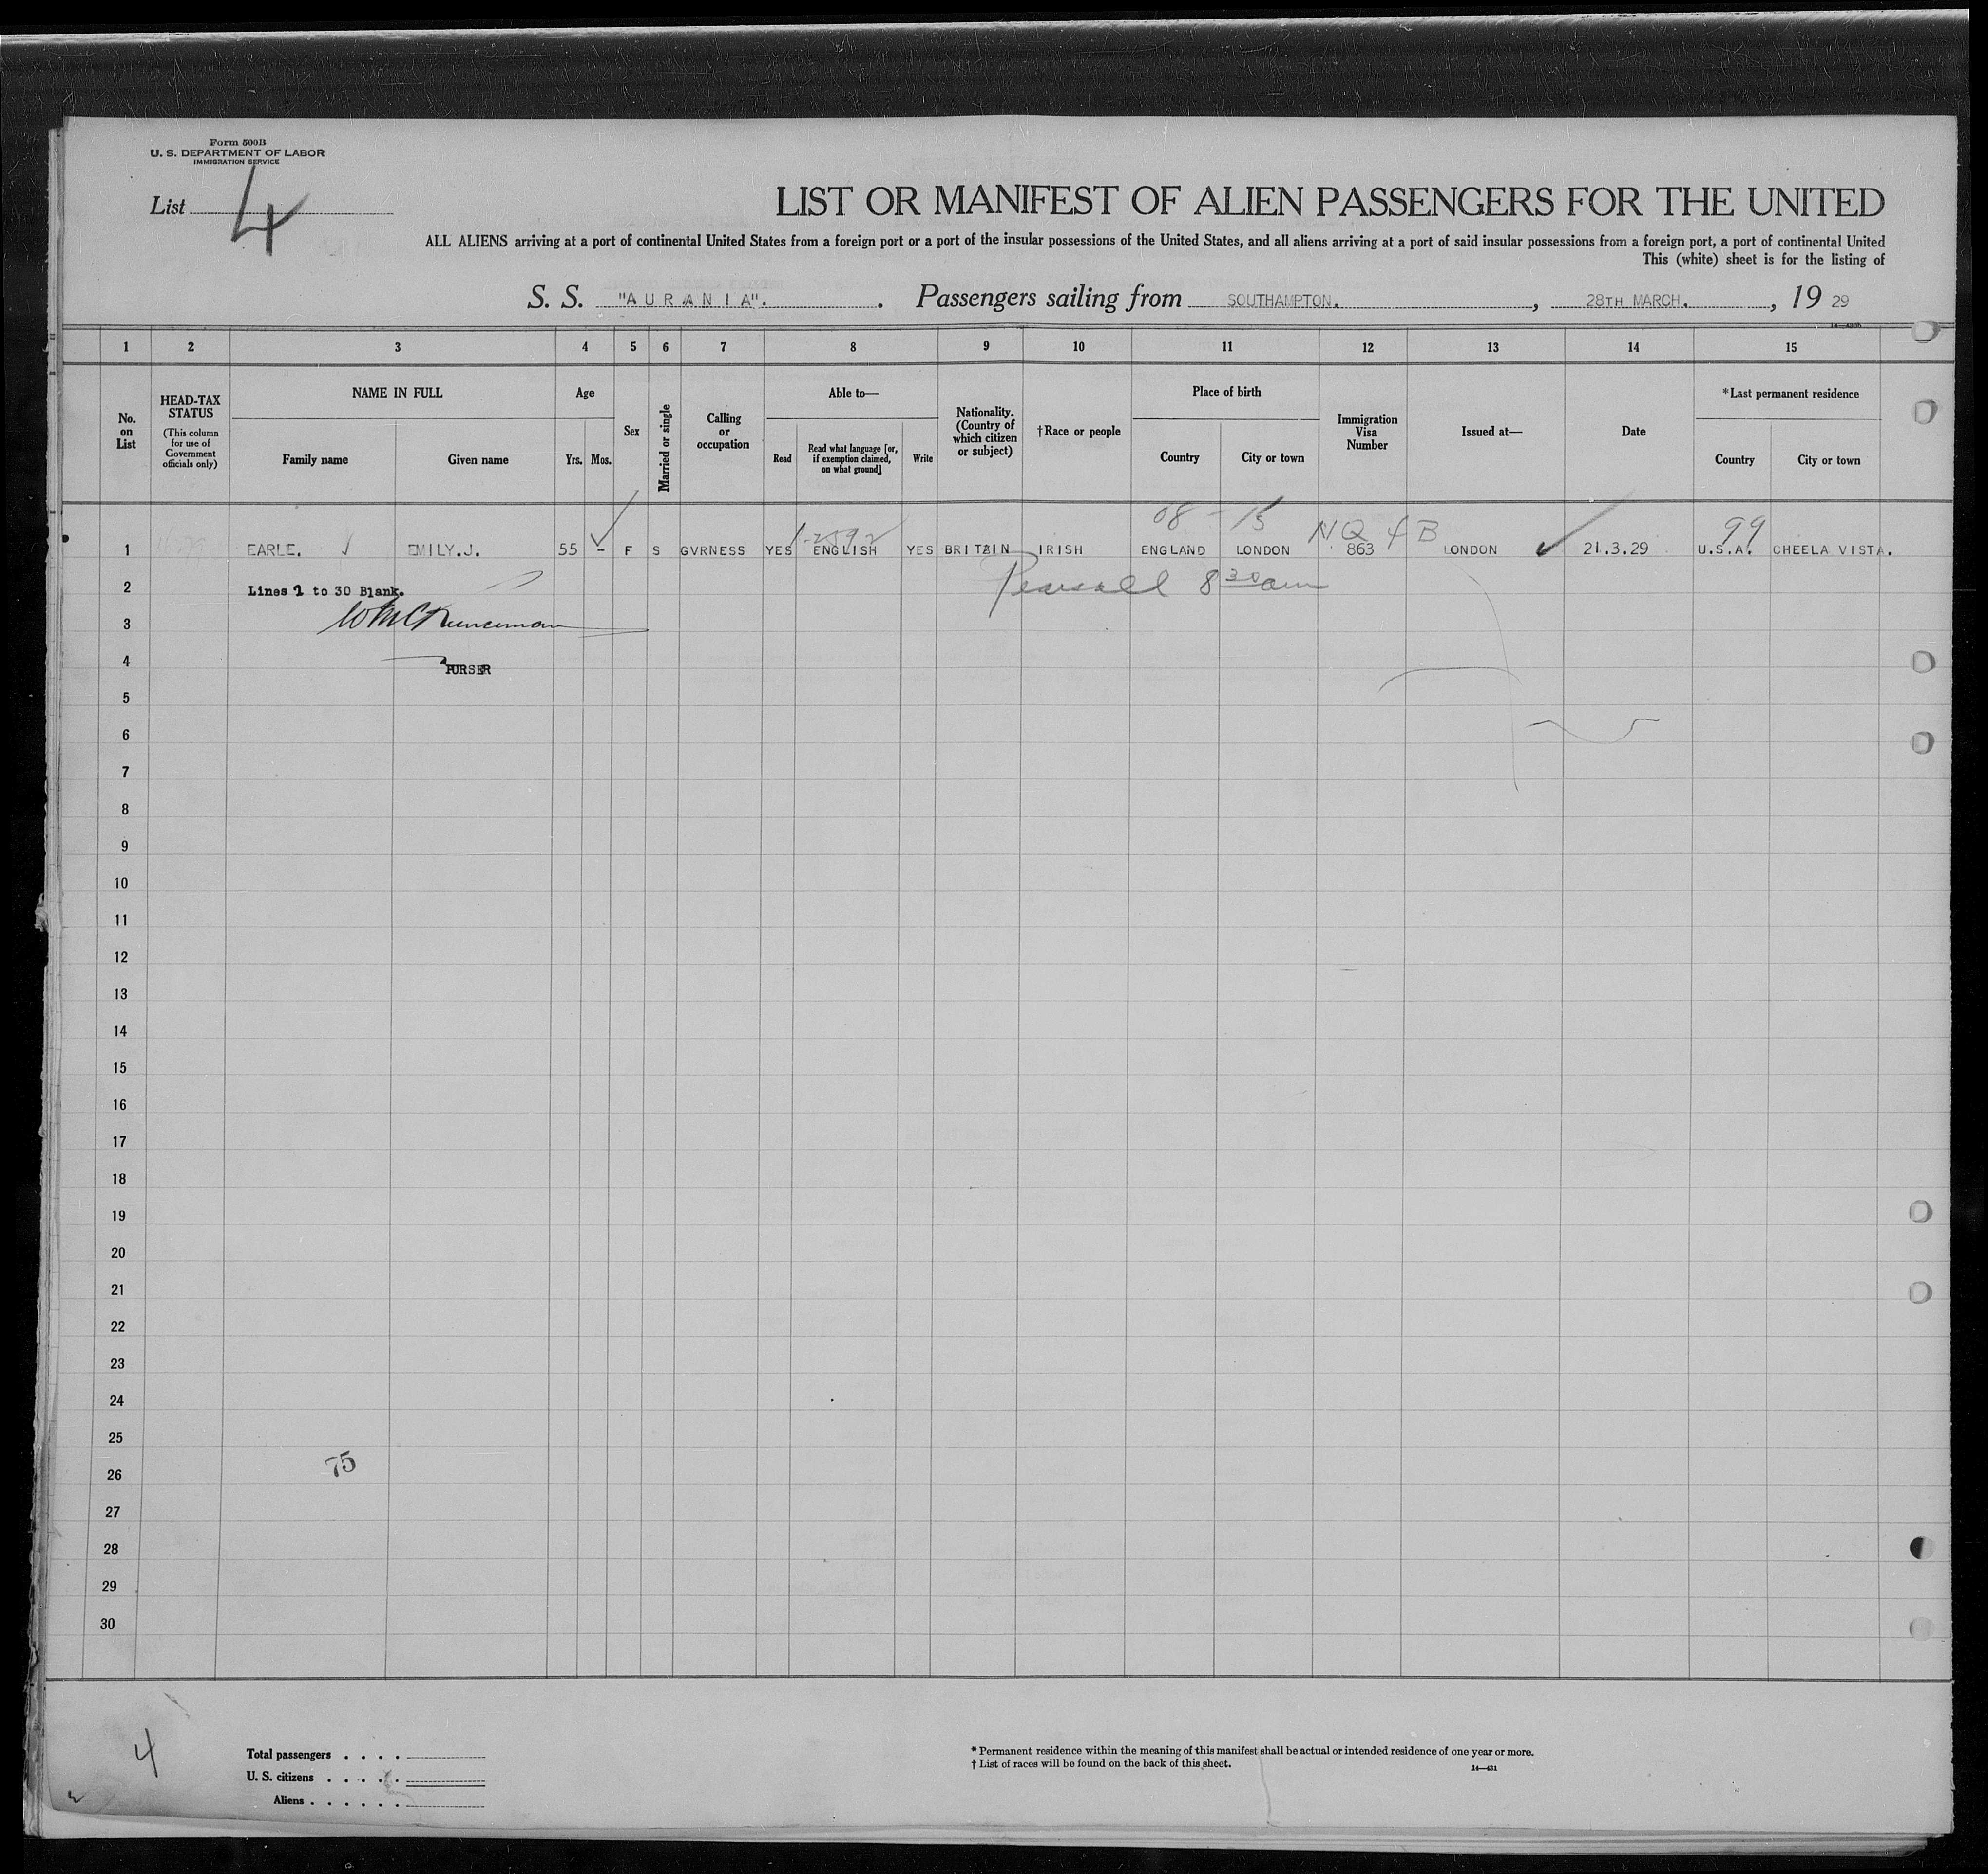 Form 500B
U. S. DEPARTMENT OF LABOR
IMMIGRATION SERVICE
List 4
LIST OR MANIFEST OF ALIEN PASSENGERS FOR THE UNITED
ALL ALIENS arriving at a port of continental United States from a foreign port or a port of the insular possessions of the United States, and all aliens arriving at a port of said insular possessions from a foreign port, a port of continental United
This (white) sheet is for the listing of
S. S. "AURANIA". . Passengers sailing from SOUTHAMPTON. , 28TH MARCH. , 19 29
1 2 3 4 5 6 7 8 9 10 11 12 13 14 15
No. on List
HEAD-TAX STATUS
(This column for use of Government officials only)
NAME IN FULL
Family name
Given name
Age
Yrs.
Mos.
Sex
Married or single
Calling or occupation
Able to—
Read
Read what language [or, if exemption claimed, on what ground]
Write
Nationality. (Country of which citizen or subject)
†Race or people
Place of birth
Country
City or town
Immigration Visa Number
Issued at—
Date
*Last permanent residence
Country
City or town
08 - 15
NQ 4 B
99
1 EARLE. EMILY.J. 55 - F S GVRNESS YES ENGLISH YES BRITAIN IRISH ENGLAND LONDON 863 LONDON 21.3.29 U.S.A. CHEELA VISTA.
2 Lines 2 to 30 Blank. 8 30 am
3
4 PURSER
5
6
7
8
9
10
11
12
13
14
15
16
17
18
19
20
21
22
23
24
25
26 75
27
28
29
30
4
Total passengers . . . .
U. S. citizens . . . . .
Aliens . . . . . .
* Permanent residence within the meaning of this manifest shall be actual or intended residence of one year or more.
† List of races will be found on the back of this sheet.
14—431